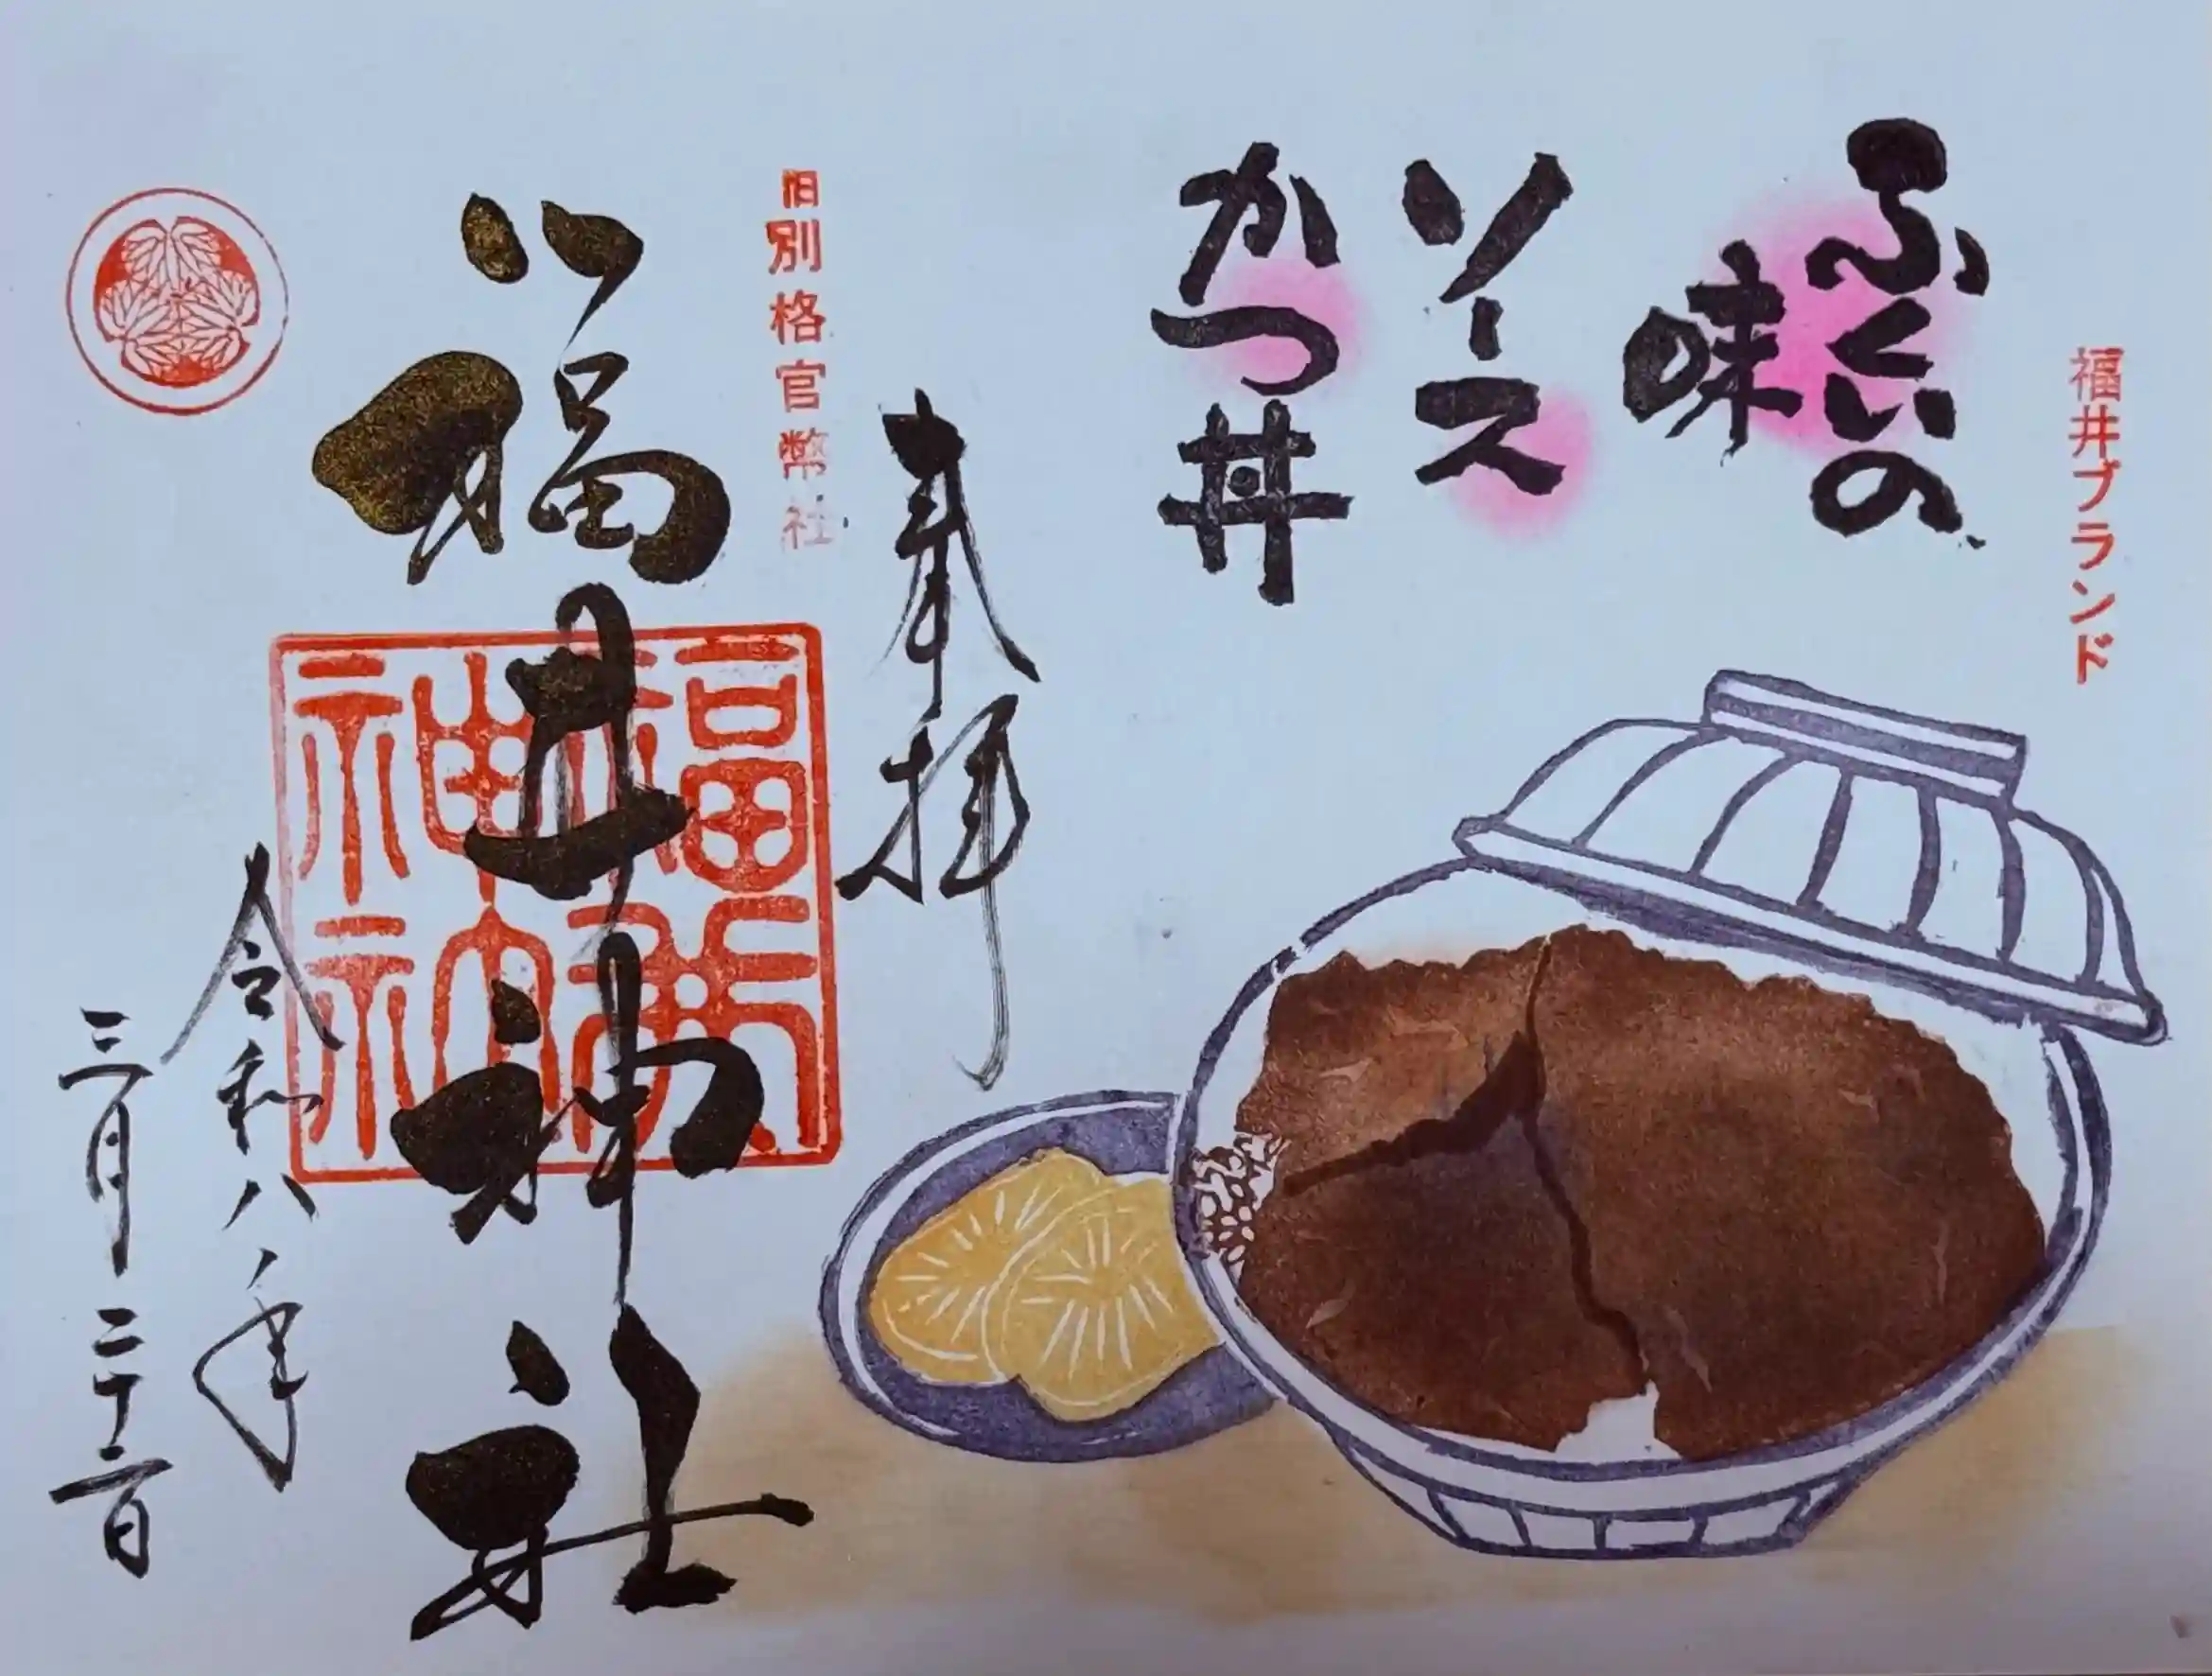 福井ブランド
ふくいの
味
ソース
かつ丼
奉拝
旧別格官幣社
福井神社
令和八年
三月二十二日